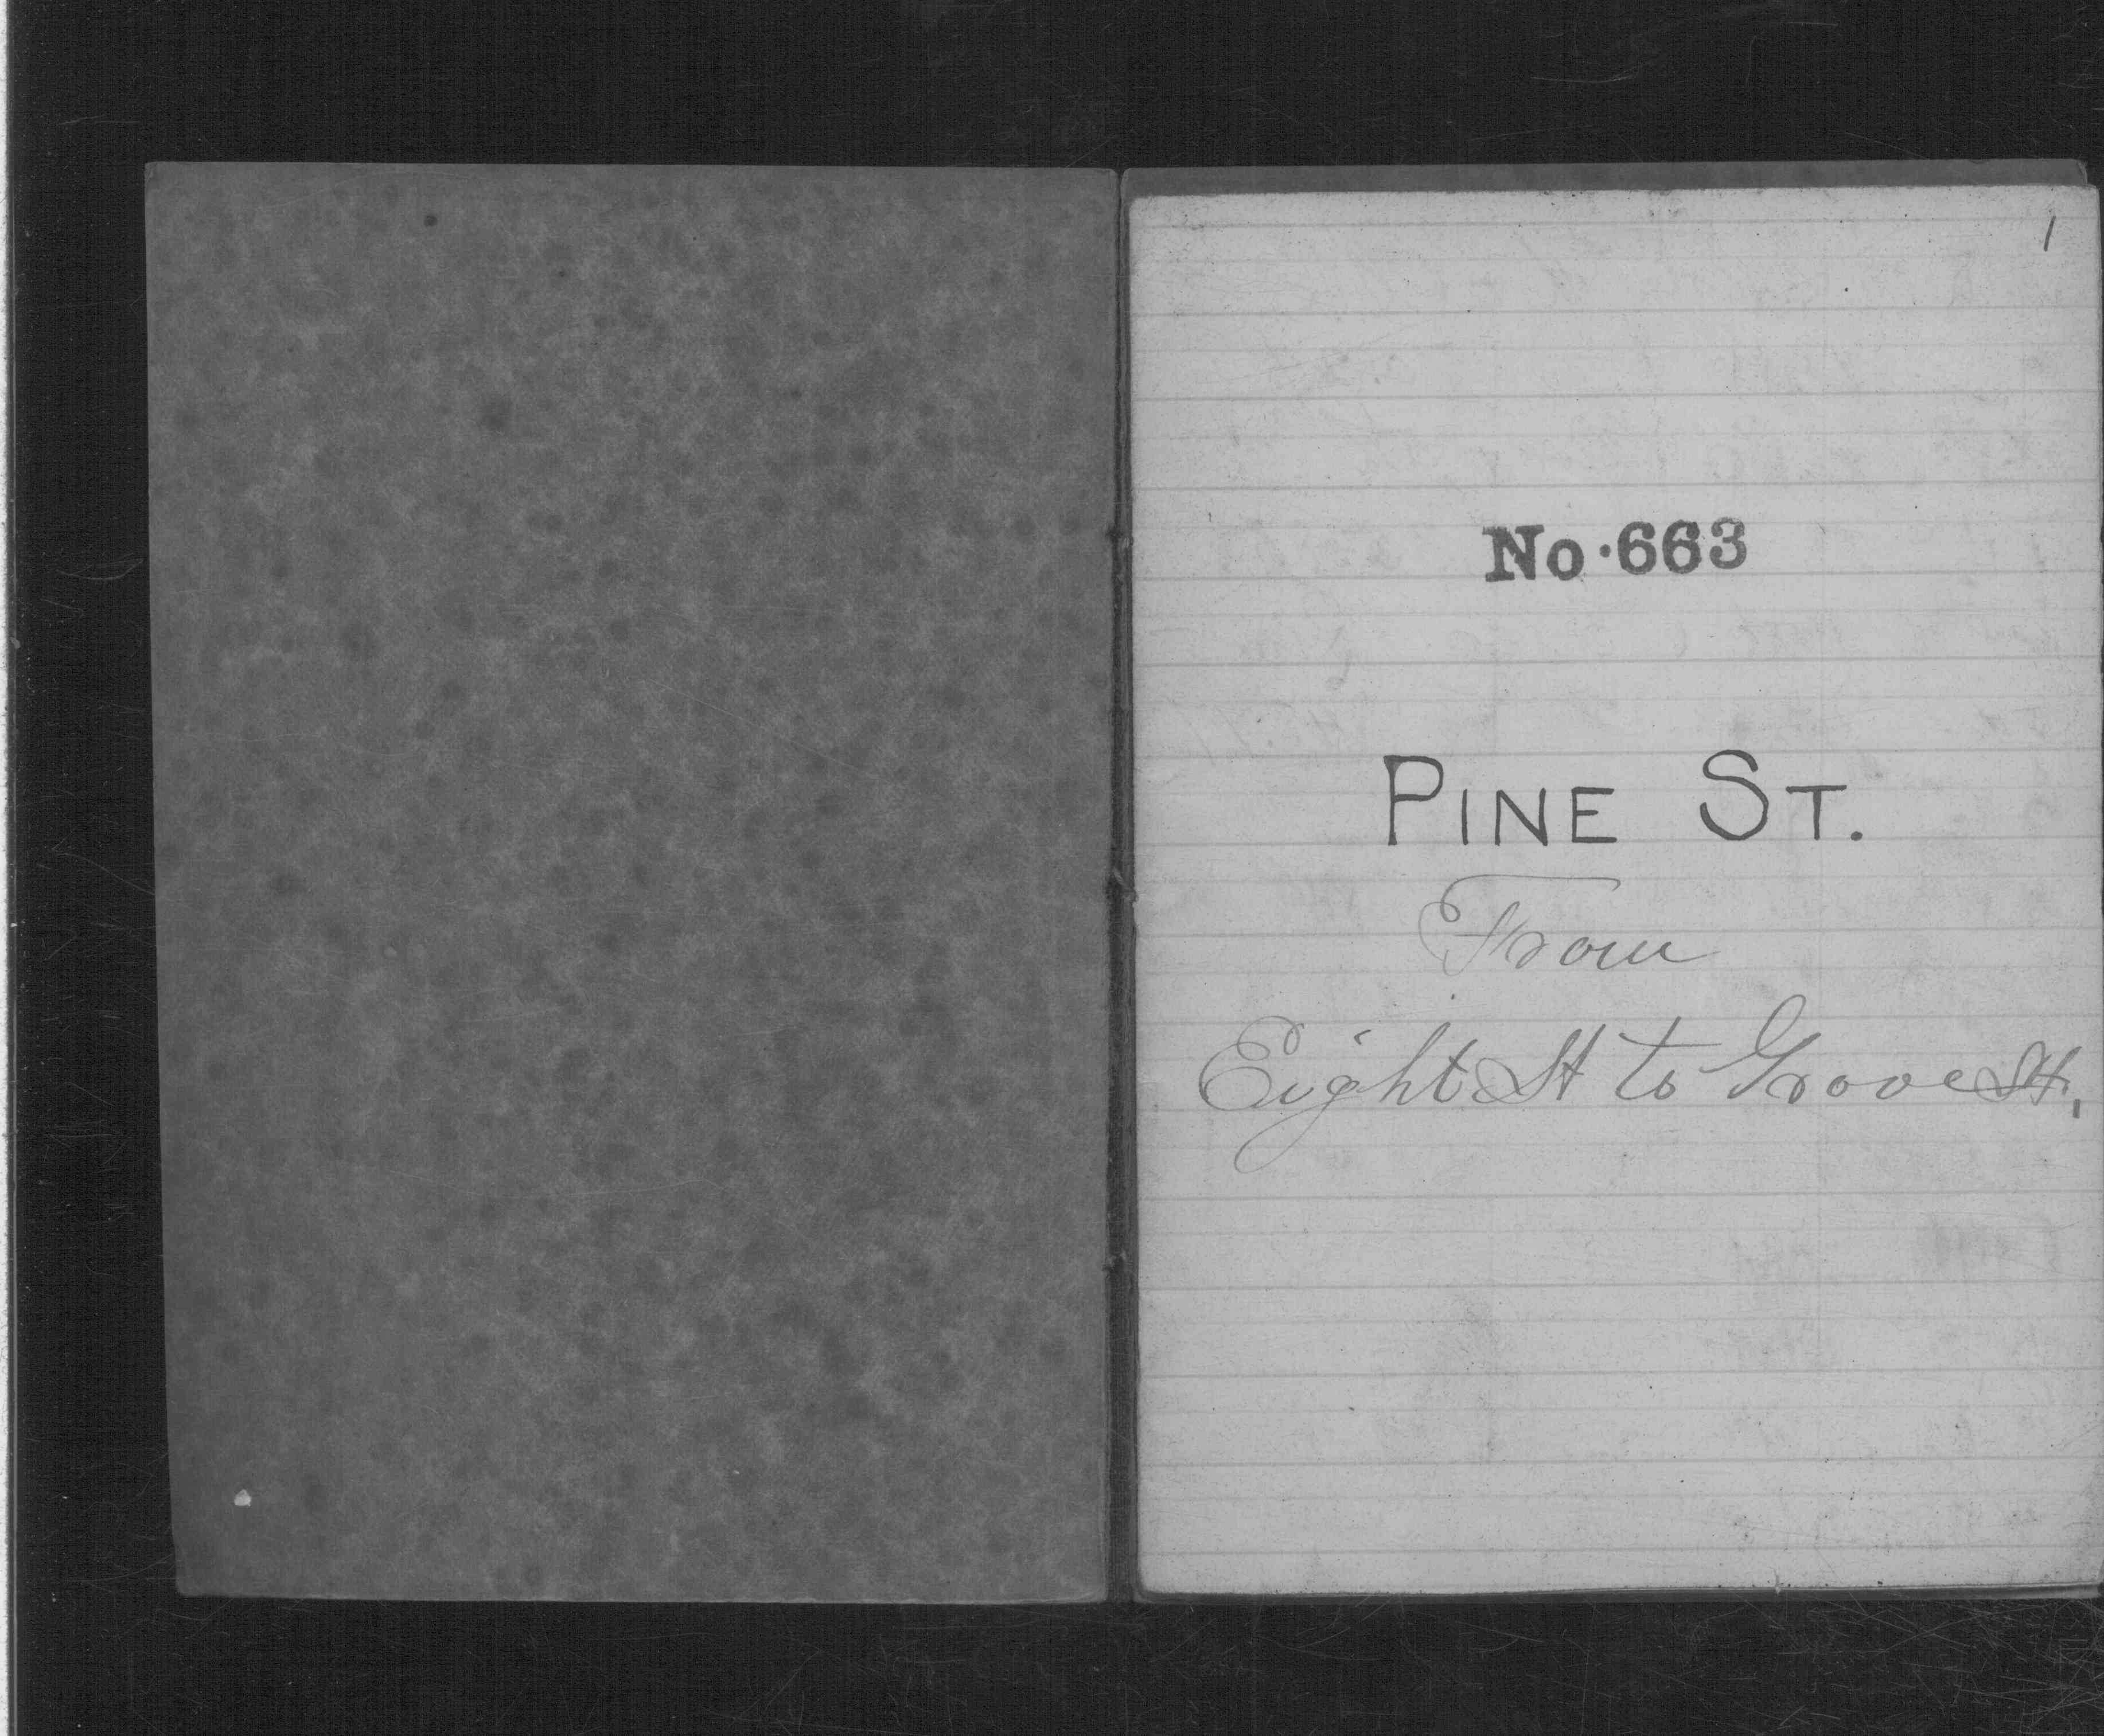 1
No. 663
PINE ST.
From
Eight St to Grove St.